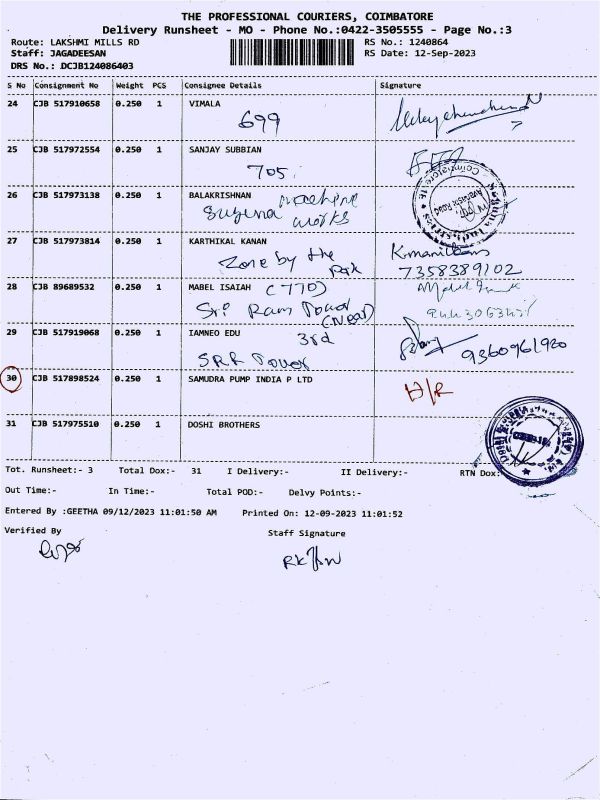 THE PROFESSIONAL COURIERS, COIMBATORE
Delivery Runsheet - MO - Phone No.:0422-3505555 - Page No.:3
Route: LAKSHMI MILLS RD RS No.: 1240864
Staff: JAGADEESAN RS Date: 12-Sep-2023
DRS No.: DCJB124086403
S No Consignment No Weight PCS Consignee Details Signature
24 CJB 517910658 0.250 1 VIMALA
699
25 CJB 517972554 0.250 1 SANJAY SUBBIAN
705
26 CJB 517973138 0.250 1 BALAKRISHNAN machine
works
27 CJB 517973814 0.250 1 KARTHIKAL KANAN
Zone by the Park 7358389102
28 CJB 89689532 0.250 1 MABEL ISAIAH (770)
Sri Ram Tower
(Near)
29 CJB 517919068 0.250 1 IAMNEO EDU 3rd
SRR Tower 9360961980
30 CJB 517898524 0.250 1 SAMUDRA PUMP INDIA P LTD H/R
31 CJB 517975510 0.250 1 DOSHI BROTHERS
Tot. Runsheet:- 3 Total Dox:- 31 I Delivery:- II Delivery:- RTN Dox:-
Out Time:- In Time:- Total POD:- Delvy Points:-
Entered By :GEETHA 09/12/2023 11:01:50 AM Printed On: 12-09-2023 11:01:52
Verified By Staff Signature